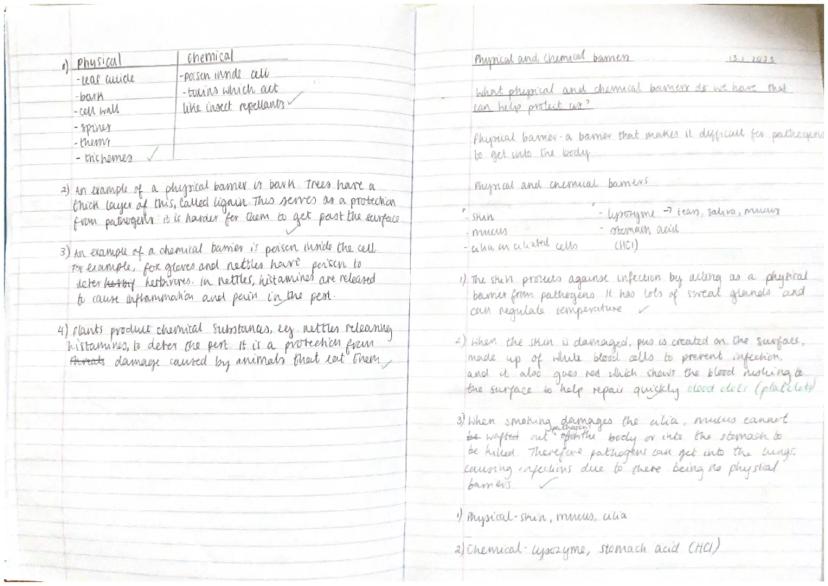 1) Physical
chemical
- leaf cuticle
- bark
- cell wall
- spines
- thorns
- trichomes
- poison inside cell
- toxins which act
like insect repellants
2) An example of a physical barrier is bark. Trees have a
thick layer of this, called lignin. This serves as a protection
from pathogens it is harder for them to get past the surface
3) An example of a chemical barrier is poison inside the cell
For example, fox gloves and nettles have poison to
deter herbivores. In nettles, histamines are released
to cause inflammation and pain in the pest.
4) Plants produce chemical substances, eg nettles releasing
histamines, to deter the pest. It is a protection from
threats damage caused by animals that eat them
Physical and chemical barriers
What physical and chemical barriers do we have that
can help protect us?
Physical barrier - a barrier that makes it difficult for pathogens
to get into the body
Physical and chemical barriers
- skin
- mucus
- cilia on ciliated cells
- lysozyme → tears, saliva, mucus
- stomach acid
(HCl)
1) The skin protects against infection by acting as a physical
barrier from pathogens. It has lots of sweat glands and
can regulate temperature
2) When the skin is damaged, pus is created on the surface,
made up of white blood cells to prevent infection,
and it also goes red which shows the blood rushing to
the surface to help repair quickly blood clots (platelets)
3) When smoking damages the cilia, mucus cannot
be wafted out the body or into the stomach to
be killed. Therefore pathogens can get into the lungs
causing infections due to there being no physical
barriers
1) Physical - skin, mucus, cilia
2) Chemical - lysozyme, stomach acid (HCl)